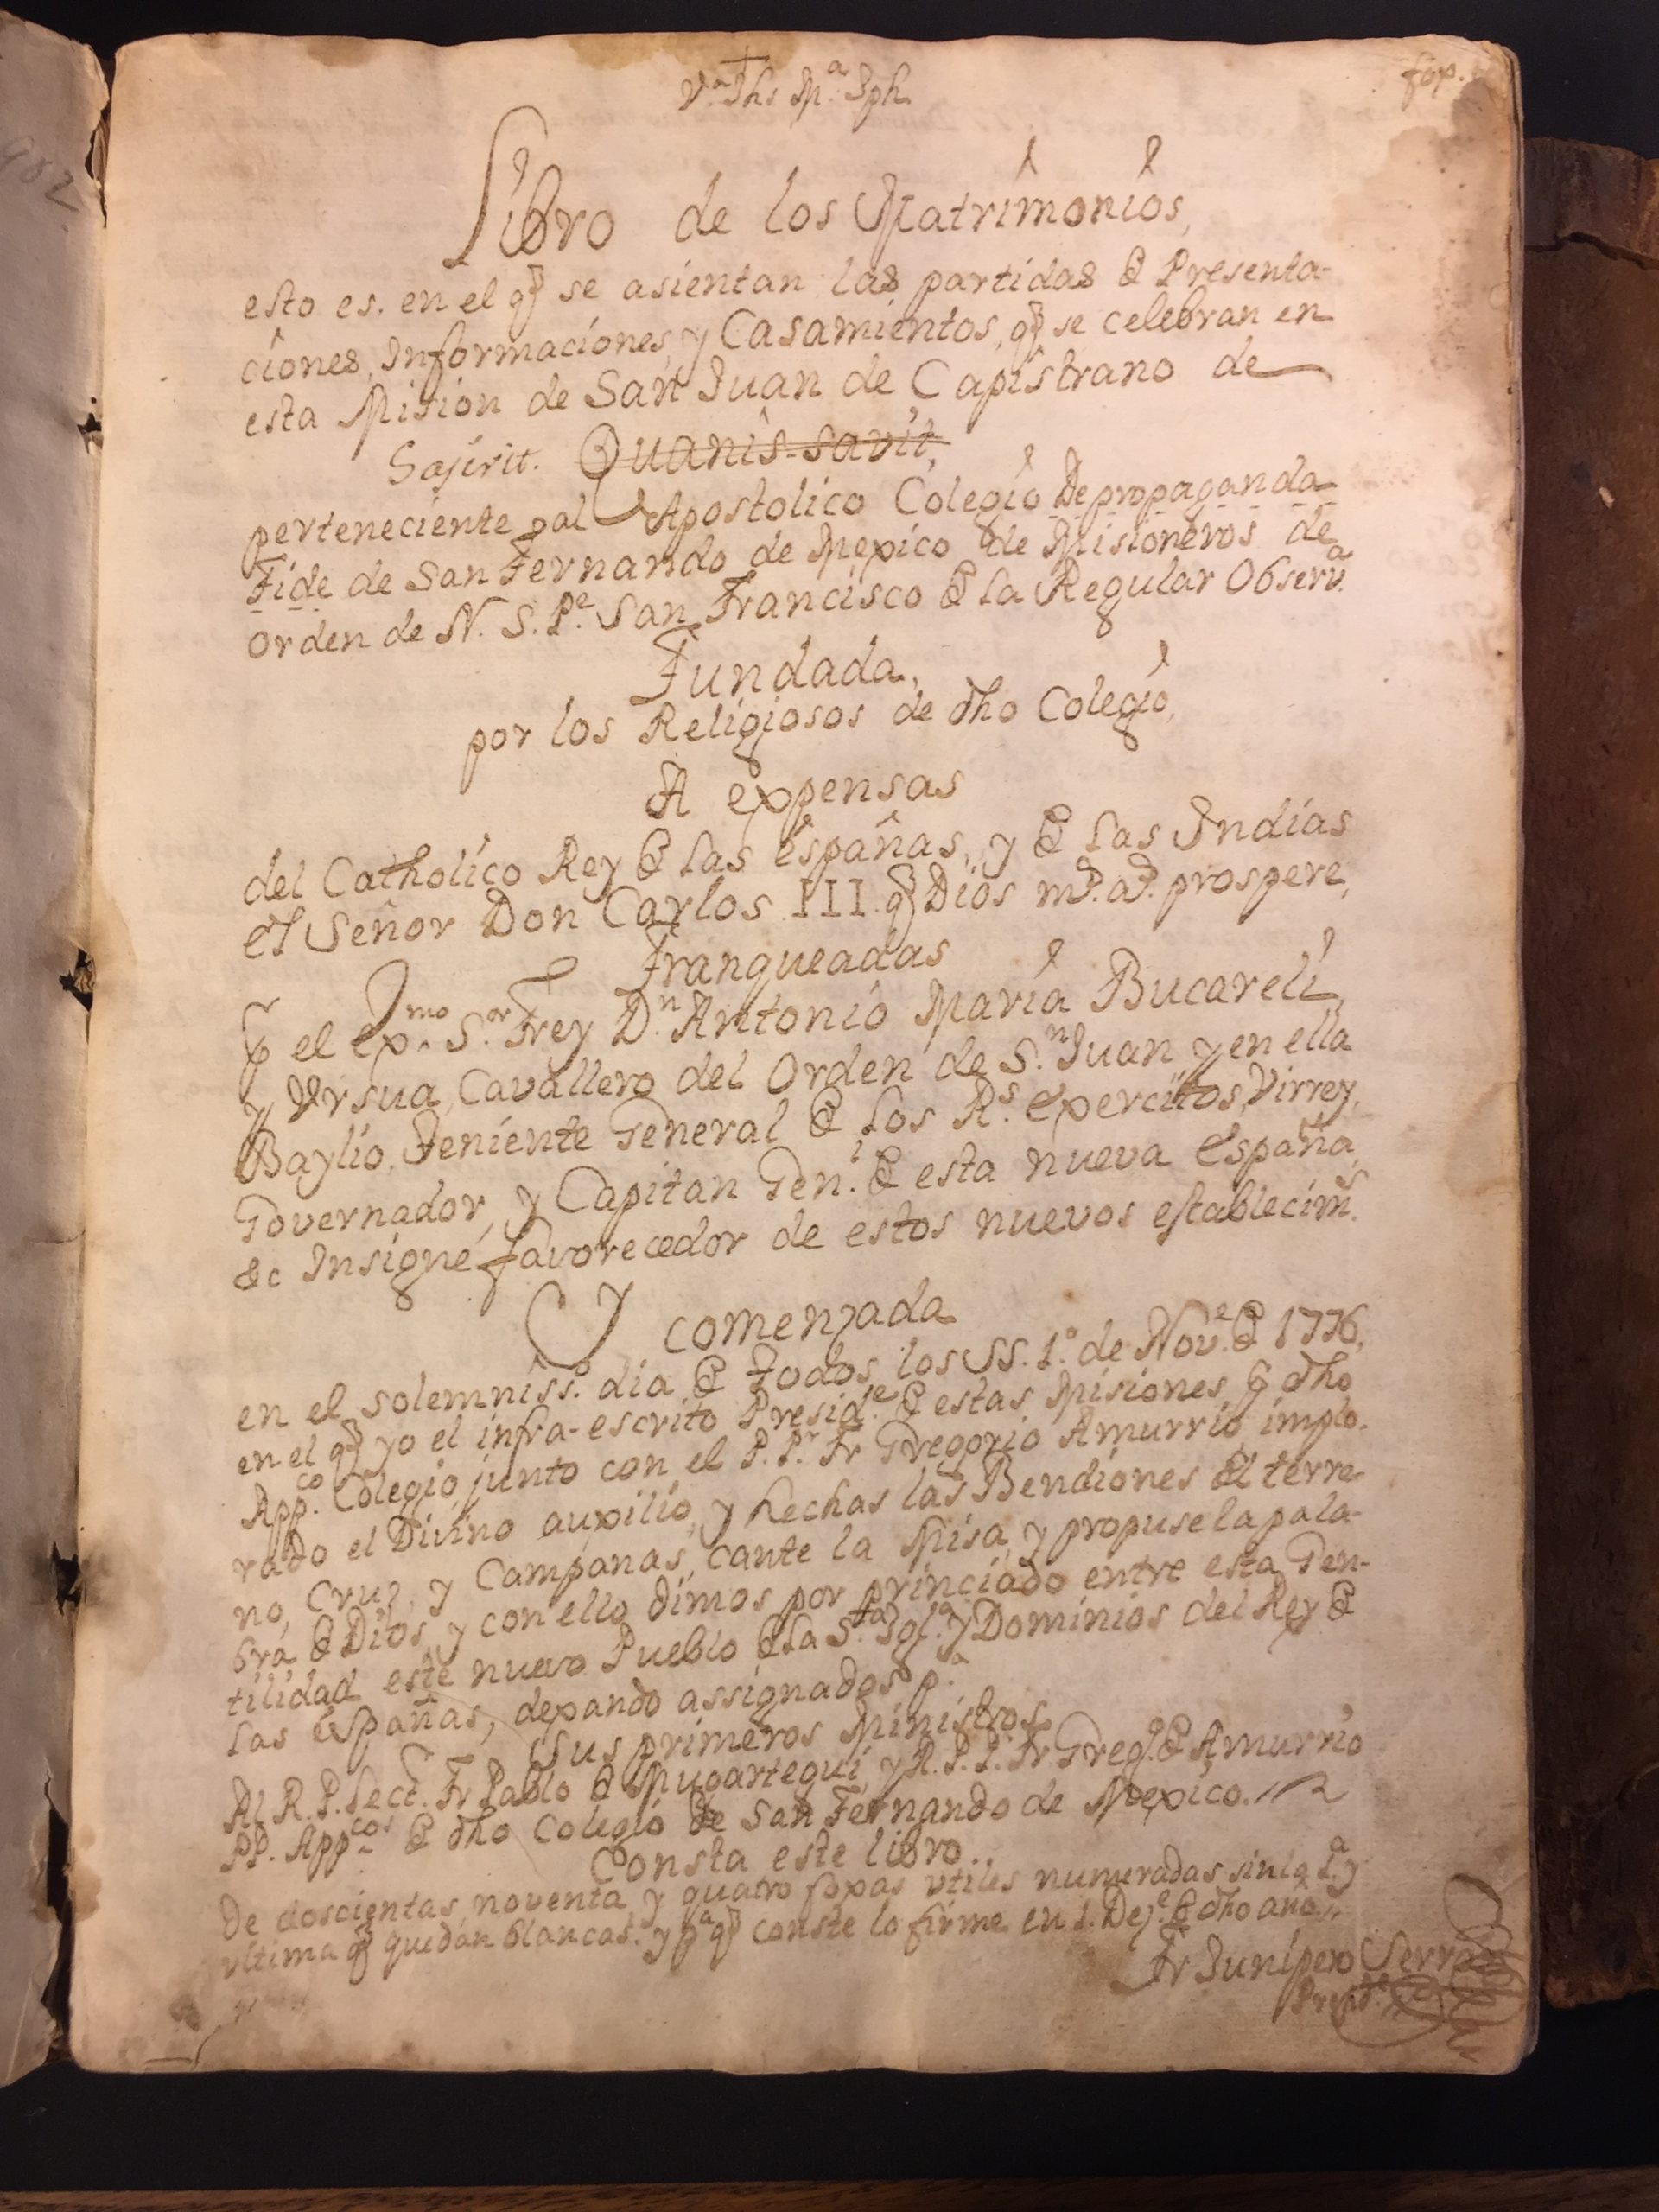 V.ª Jhs M.ª Jph.
fox.
982
Libro de los Matrimonios,
esto es. en el q̃ se asientan las partidas de Presenta-
ciones, Informaciones, y Casamientos, q̃ se celebran en
esta Mision de San Juan de Capistrano de
Sajirit. Quanis-savit,
perteneciente al Apostolico Colegio De propaganda
Fide de San Fernando de Mexico de Misioneros de
Orden de N. S. P.e San Francisco de la Regular Observ.a
Fundada,
por los Religiosos de dho Colegio,
A expensas
del Catholico Rey de las españas, y de las Indias
el Señor Don Carlos III. q̃ Dios m.s a.s prospere,
Franqueadas
p.r el Ex.mo S.or Frey D.n Antonio Maria Bucareli,
y Ursua, Cavallero del Orden de S.n Juan, y en ella
Baylio, Teniente General de los R.s Exercitos, Virrey,
Governador, y Capitan Gen.l de esta nueva España,
&c Insigne favorecedor de estos nuevos establecim.s
Y comenzada
en el solemniss.o dia de Todos los SS. 1.º de Nov.e de 1776,
en el q̃ yo el infra-escrito Presid.e de estas Misiones p.r dho
App.co Colegio junto con el P. P.r Fr Gregorio Amurrio implo-
rado el Divino auxilio, y hechas las Bendiones del terre-
no, Cruz, y Campanas, cante la Misa, y propuse la pala-
bra de Dios, y con ello dimos por princiado entre esta Gen-
tilidad este nuevo Pueblo de la S.ta Igl.a y Dominios del Rey de
las Españas, dexando assignados p.a
Sus primeros Ministros
Al R. P. Lect.r Fr Pablo de Mugartegui, y R. P. P.r Fr Greg.o de Amurrio
PP. App.cos de dho Colegio de San Fernando de Mexico.
Consta este libro
De doscientas noventa y quatro foxas utiles numeradas sin la 1.ª y
ultima q̃ quedan blancas. y p.a q̃ conste lo firme en 1. Dez.e de dho año.
Fr Junipero Serra
Presid.e